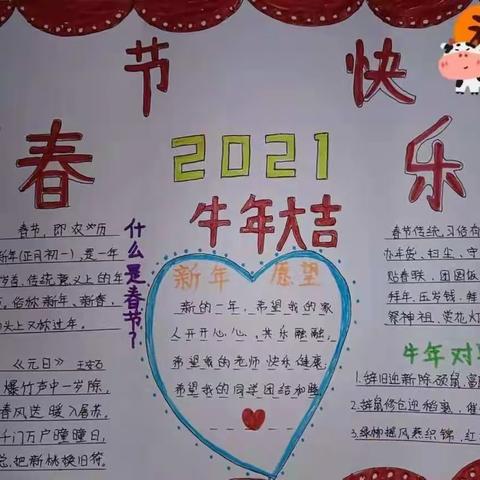 春节快乐
2021
牛年大吉
什么是春节?
春节,即农历
新年(正月初一),是一年
岁首、传统意义上的年
俗称新年、新春、
头上又叫过年。
《元日》 王安石
爆竹声中一岁除,
春风送暖入屠苏。
千门万户曈曈日,
总把新桃换旧符。
新年愿望
新的一年,希望我的家
人开开心心,共乐融融。
希望我的老师快乐健康,
希望我的同学团结和睦。
春节传统习俗有
办年货、扫尘、守
贴春联、团圆饭
拜年、压岁钱、
祭神祖、赏花灯
牛年对
1.辞旧迎新除硕鼠,
2.辞鼠修仓迎稻熟,
3.绿柳摇风燕织锦,红